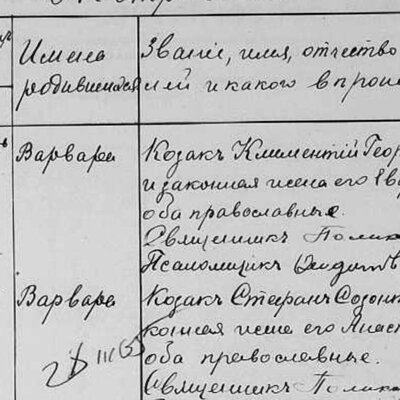 Имена
родившихся
Званіе, имя, отчество
лей и какого вѣроис
Варвара
Козакъ Климентій Геор
и законная жена его Ев
оба православные.
Священникъ Поли
Псаломщикъ
Варвара
Козакъ Стефанъ Созонт
конная жена его Анас
оба православные.
Священникъ Поли